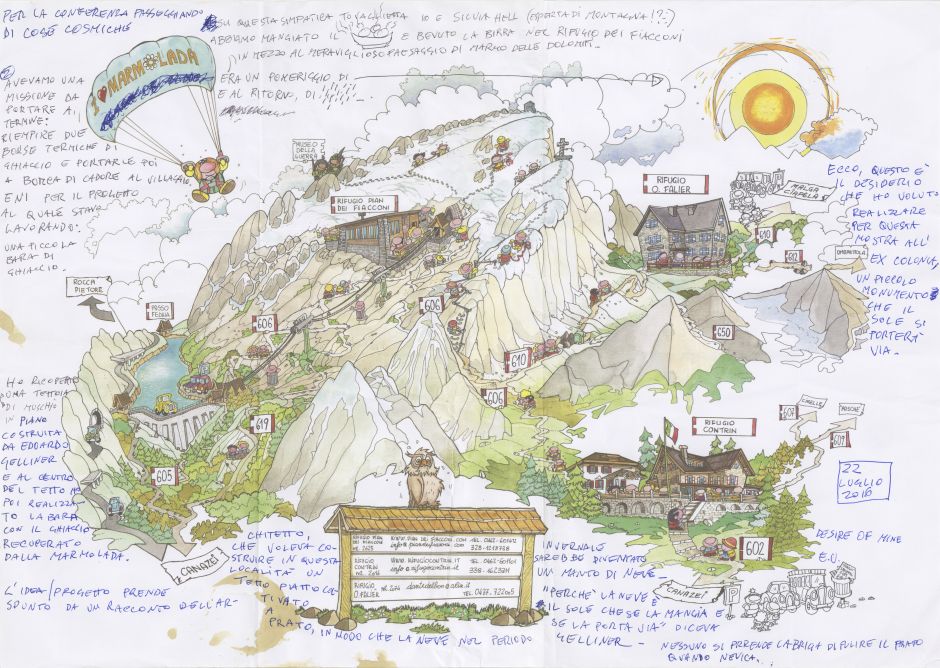 PER LA CONFERENZA PASSEGGIANDO
DI COSE COSMICHE
SU QUESTA SIMPATICA TOVAGLIETTA IO E SILVIA HELL (ESPERTA DI MONTAGNA!?)
ABBIAMO MANGIATO IL E BEVUTO LA BIRRA NEL RIFUGIO DEI FIACCONI
IN MEZZO AL MERAVIGLIOSO PAESAGGIO DI MARMO DELLE DOLOMITI..
ERA UN POMERIGGIO DI
E AL RITORNO, DI
2
AVEVAMO UNA
MISSIONE DA
PORTARE A
TERMINE:
RIEMPIRE DUE
BORSE TERMICHE DI
GHIACCIO E PORTARLE POI
A BORCA DI CADORE AL VILLAGGIO
ENI PER IL PROGETTO
AL QUALE STAVO
LAVORANDO:
UNA PICCOLA
BARA DI
GHIACCIO.
I MARMOLADA
MUSEO
DELLA
GUERRA
RIFUGIO PIAN
DEI FIACCONI
RIFUGIO
O. FALIER
MALGA
CIAPELA
610
612
OMBRETTOLA
ECCO, QUESTO È
IL DESIDERIO
CHE HO VOLUTO
REALIZZARE
PER QUESTA
MOSTRA ALL'
EX COLONIA,
UN PICCOLO
MONUMENTO
CHE IL
SOLE SI
PORTERÀ
VIA.
ROCCA
PIETORE
PASSO
FEDAIA
606
606
650
610
606
619
605
HO RICOPERTO
UNA TETTOIA
DI MUSCHIO
IN PIANO
COSTRUITA
DA EDOARDO
GELLINER
E AL CENTRO
DEL TETTO HO
POI REALIZZA
TO LA BARA
CON IL GHIACCIO
RECUPERATO
DALLA MARMOLADA.
CANAZEI
RIFUGIO
CONTRIN
607
CIRELLE
PASCHÈ
609
22
LUGLIO
2016
602
DESIRE OF MINE
E.U.
CANAZEI
RIFUGIO PIAN
DEI FIACCONI
WWW.PIAN DEI FIACCONI.COM
RIFUGIO
CONTRIN
WWW.RIFUGIOCONTRIN.IT
info@rifugiocontrin.it
RIFUGIO
O. FALIER
L'IDEA/PROGETTO PRENDE
SPUNTO DA UN RACCONTO DELL'AR-
CHITETTO,
CHE VOLEVA CO-
STRUIRE IN QUESTA
LOCALITÀ UN
TETTO PIATTO COL-
TIVATO
A
PRATO, IN MODO CHE LA NEVE NEL PERIODO
INVERNALE
SAREBBE DIVENTATA
UN MANTO DI NEVE-
"PERCHÈ LA NEVE È
IL SOLE CHE SE LA MANGIA E
SE LA PORTA VIA" DICEVA
GELLINER - NESSUNO SI PRENDE LA BRIGA DI PULIRE IL PRATO
QUANDO NEVICA.